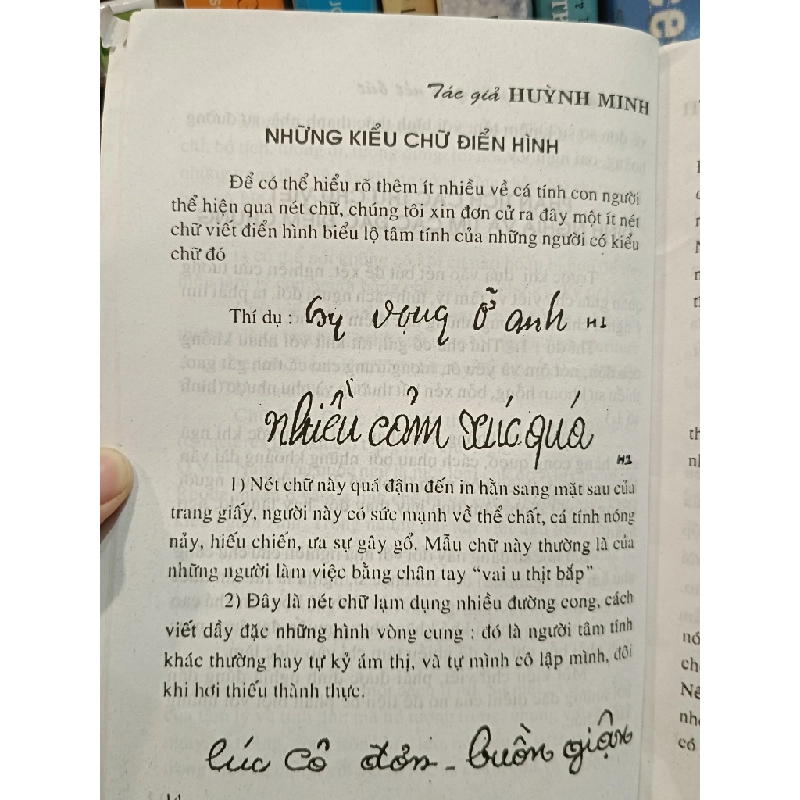 Tác giả HUỲNH MINH
NHỮNG KIỂU CHỮ ĐIỂN HÌNH
Để có thể hiểu rõ thêm ít nhiều về cá tính con người
thể hiện qua nét chữ, chúng tôi xin đơn cử ra đây một ít nét
chữ viết điển hình biểu lộ tâm tính của những người có kiểu
chữ đó
Thí dụ : hy vọng ở anh H1
nhiều cảm xúc quá
H2
1) Nét chữ này quá đậm đến in hằn sang mặt sau của
trang giấy, người này có sức mạnh về thể chất, cá tính nóng
nảy, hiếu chiến, ưa sự gây gổ. Mẫu chữ này thường là của
những người làm việc bằng chân tay “vai u thịt bắp”
2) Đây là nét chữ lạm dụng nhiều đường cong, cách
viết dầy đặc những hình vòng cung : đó là người tâm tính
khác thường hay tự kỷ ám thị, và tự mình cô lập mình, đôi
khi hơi thiếu thành thực.
lúc cô đơn - buồn giận
14